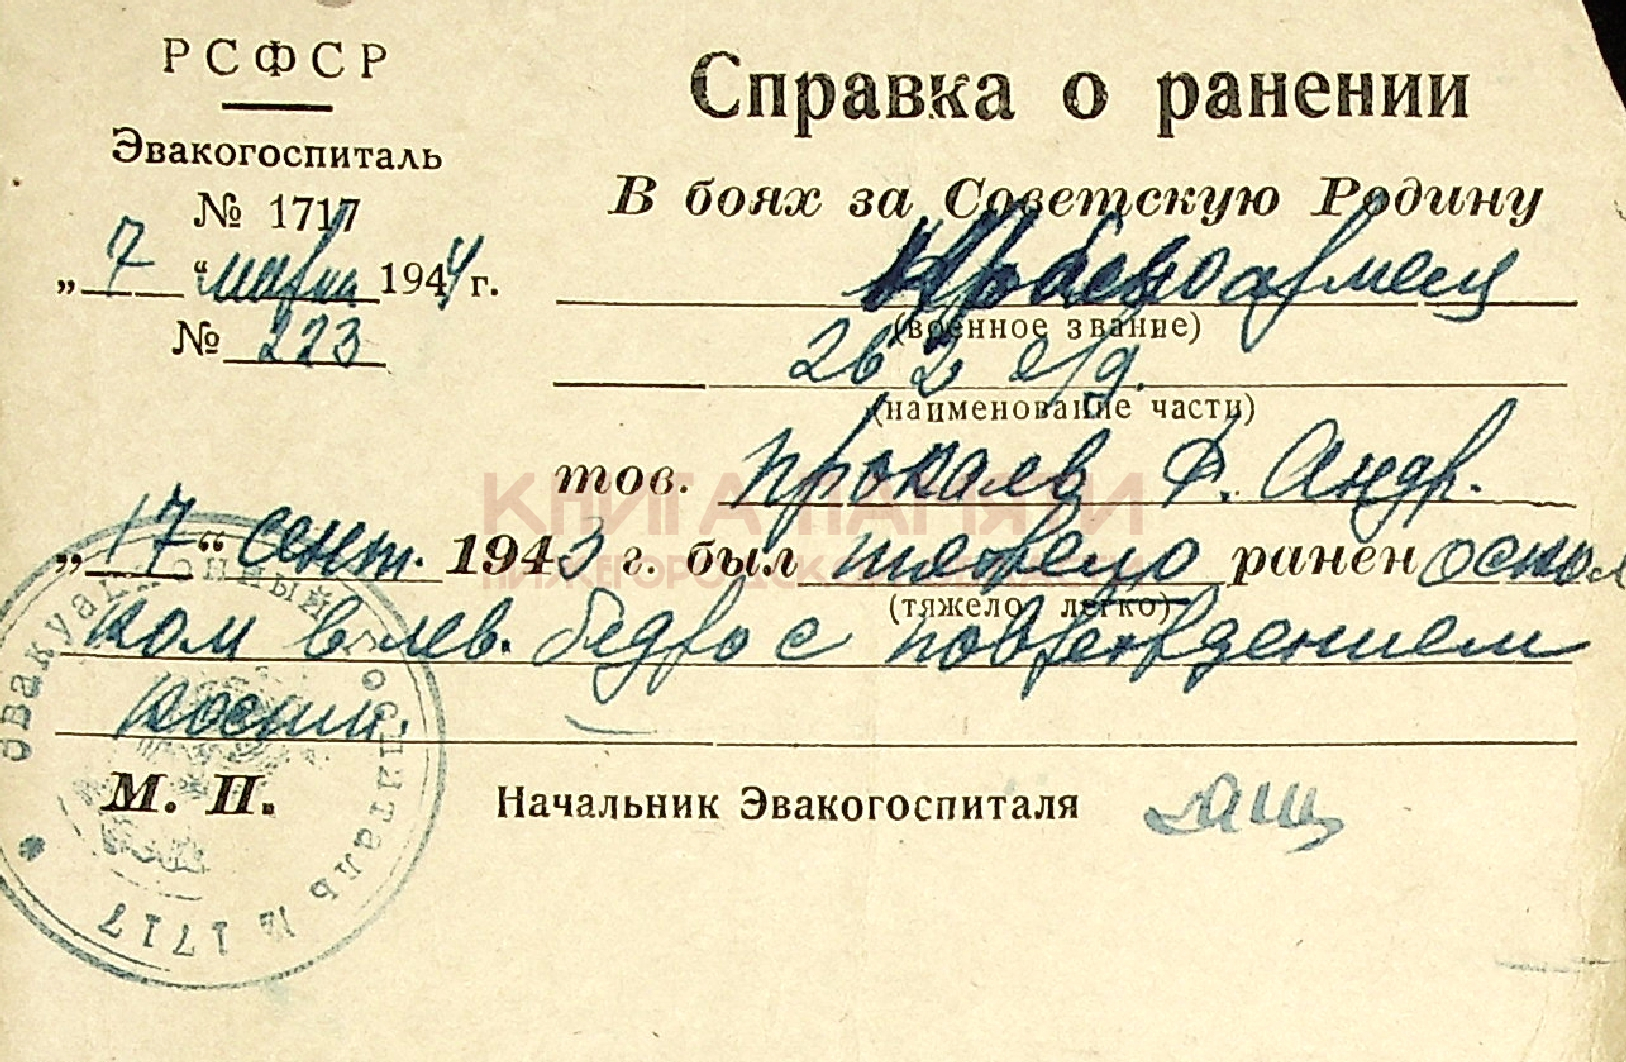 РСФСР
Эвакогоспиталь
№ 1717
„7“ марта 1944 г.
№ 223
Справка о ранении
В боях за Советскую Родину
Красноармеец
(военное звание)
262 с/д.
(наименование части)
тов. Прокаев Ф. Андр.
„17“ сент. 1943 г. был тяжело ранен оскол
(тяжело, легко)
ком в лев. бедро с повреждением
кости.
М. П. Начальник Эвакогоспиталя
Эвакуационный госпиталь № 1717
КНИГА ПАМЯТИ
НИЖЕГОРОДСКОЙ ОБЛАСТИ